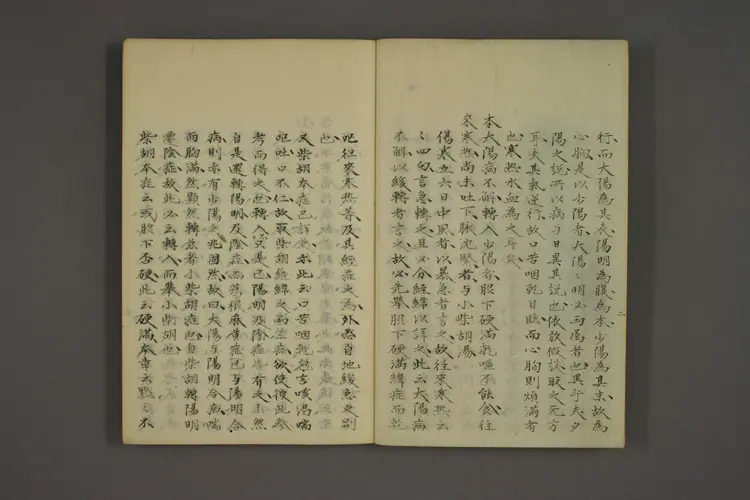 行而太陽為其表陽明為腹為本少陽為其末故為
心胸是以少陽者太陽明必兩傷者也異于夫夕
陽之說所以病与日異其說也依放假設取之死方
耳夫其氣逆行故口苦咽乾目眩而心胸則煩滿者
也寒熱水血為之耳矣
本太陽病不解轉入少陽者脇下硬滿乾嘔不能食往
來寒熱尚未吐下脉沈緊者与小柴胡湯
傷寒五六日中風者以暴急者言之故往來寒熱云
四句言急轉之且必分經緯以詳之此云太陽病
不解以緩轉者言之故必先舉脇下硬滿緯症而乾
嘔往來寒熱等及其經症之為外患自地緩急之別
也
又柴胡本症已詳矣亦此云口苦咽乾然言咳渴喘
嘔吐口不仁故取柴胡經緯之兩症欲使彼此參
考而得之也轉入字是已陽明及陰症皆有之然
自是運轉陽明及陰症而蕩很麻黄症已与陽明合
病則亦有少陽之兆固然故曰太陽与陽明合病喘
而胸滿然顕然轉並者小柴胡症也自柴胡轉陽明
壅陰症故此必云轉入而舉小柴胡也
柴胡本症云或脇下否硬此云硬滿本章云默々不